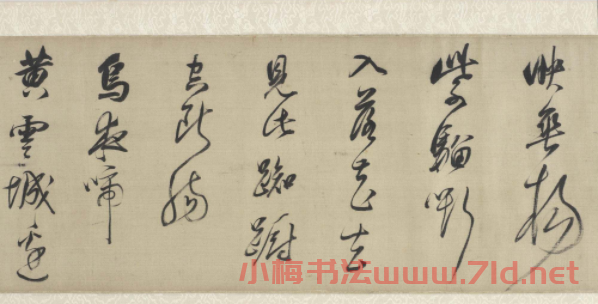 映垂楊
紫騮嘶
入落花去
見此踟蹰
空斷腸
烏夜啼
黄雲城邊
小梅书法www.7ld.net